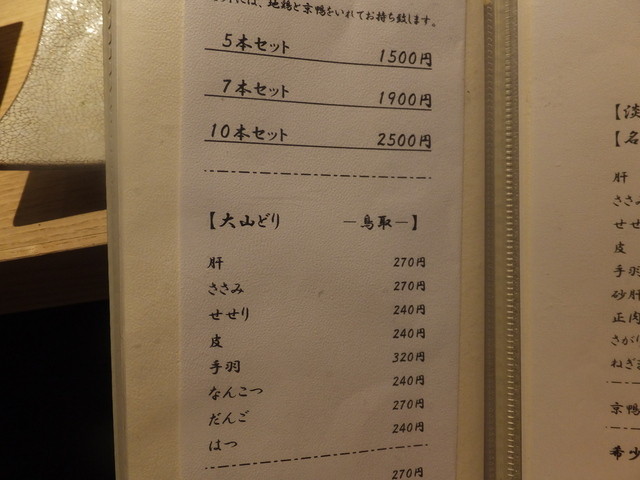 には、地鶏と京鴨をいれてお持ち致します。
5本セット 1500円
7本セット 1900円
10本セット 2500円
【大山どり ー鳥取ー】
肝 270円
ささみ 270円
せせり 240円
皮 240円
手羽 320円
なんこつ 240円
だんご 270円
はつ 240円
270円
【淡
【名
肝
ささ
せせ
皮
手羽
砂肝
正肉
さがり
ねぎま
京鴨
希少